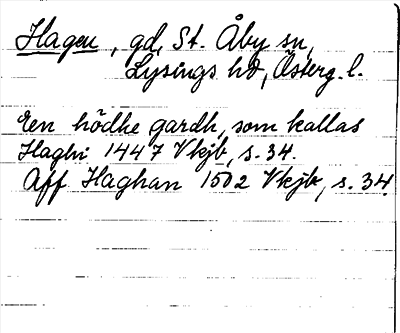 Hagen, gd, St. Åby sn,
Lysings hd, Österg. l.
Een hödhe gardh, som kallas
Haghi 1447 Vkjb, s. 34.
Aff Haghan 1502 Vkjb, s. 34.